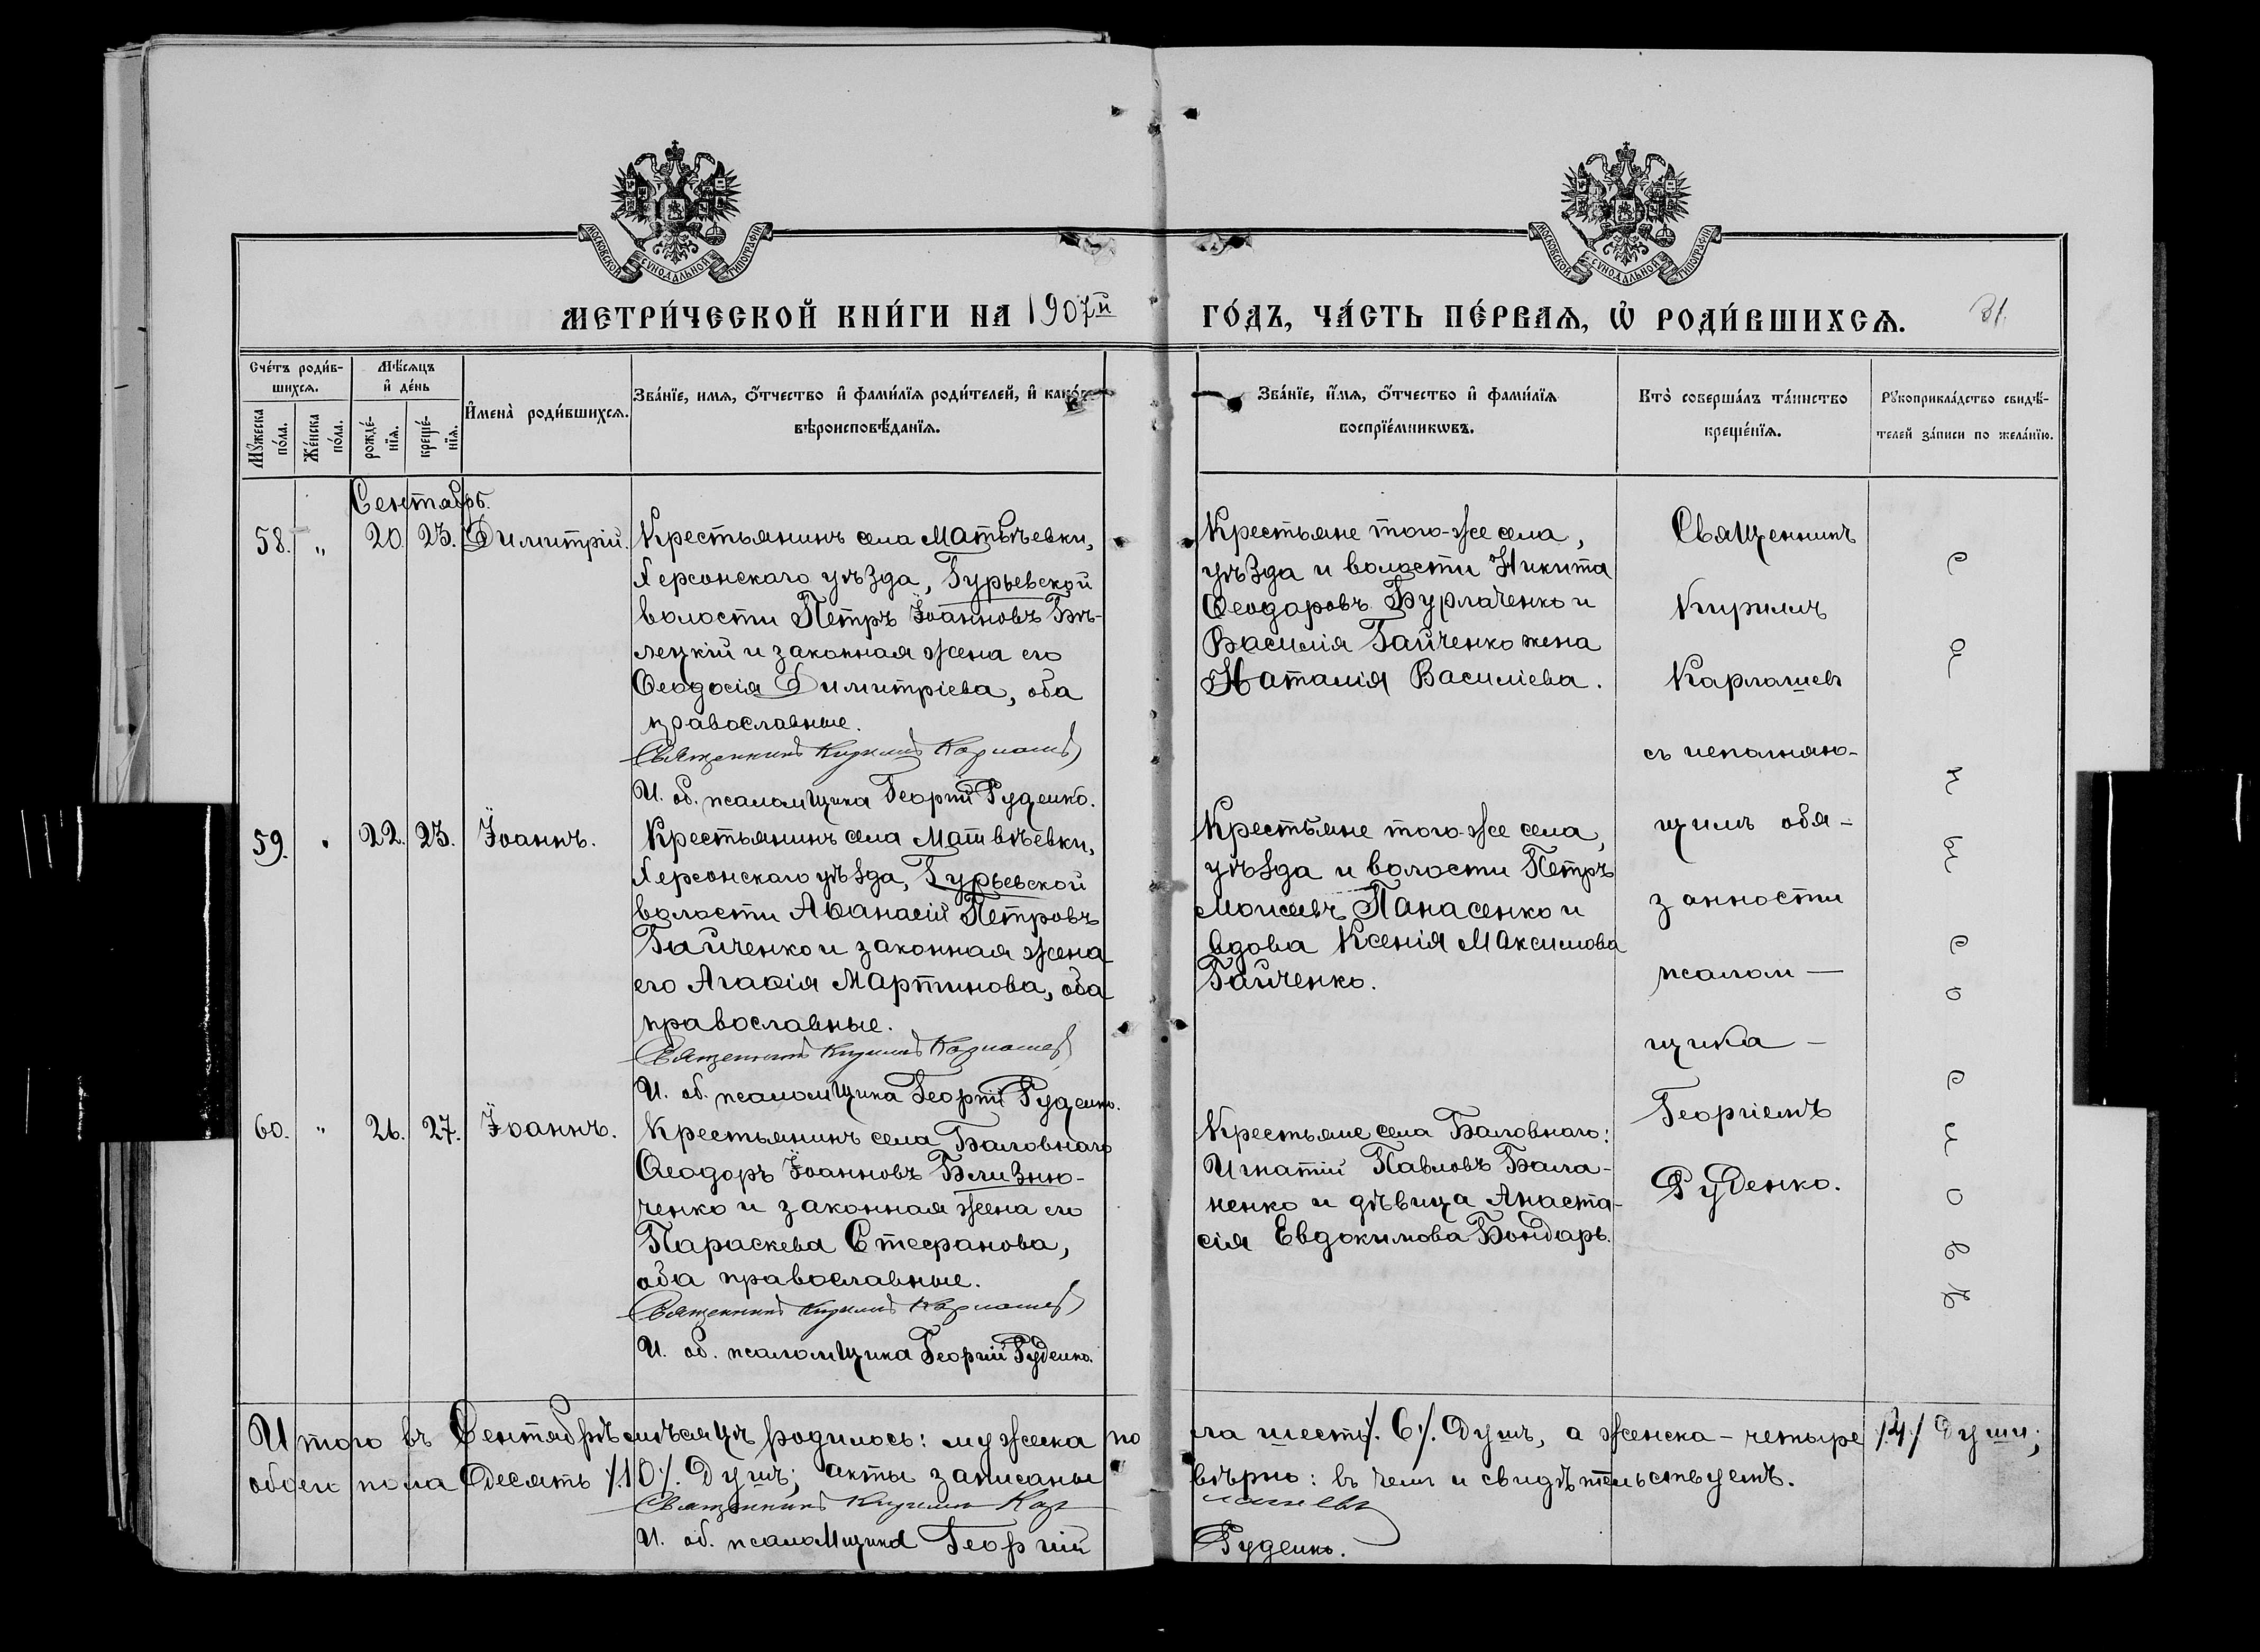 МОСКОВСКОЙ СѴНОДАЛЬНОЙ ТИПОГРАФІИ
МОСКОВСКОЙ СѴНОДАЛЬНОЙ ТИПОГРАФІИ
МЕТРИ́ЧЕСКОЙ КНИ́ГИ НА 1907й
ГО́ДЪ, ЧА́СТЬ ПЕ́РВАЯ, Ѡ҆ РОДИ́ВШИХСѦ.
31.
Сче́тъ роди́в-
шихсѧ.
Мꙋ́жеска по́ла.
Же́нска по́ла.
Мѣ́сѧцъ
и҆ де́нь
рожде́-
нїѧ.
креще́-
нїѧ.
И҆мена̀ роди́вшихсѧ.
Зва́нїе, имѧ, ѻ҆́тчество и҆ фами́лїѧ роди́телей, и҆ како́гѡ
вѣ́роисповѣ́данїѧ.
Зва́нїе, и҆́мѧ, ѻ҆́тчество и҆ фами́лїѧ
воспрїе́мникѡвъ.
Кто̀ соверша́лъ та́инство
креще́нїѧ.
Рꙋкоприкла́дство свидѣ́-
телей за́писи по жела́нїю.
Сентябрь.
58. „ 20. 23. Димитрій.
Крестьянинъ села Матвѣевки,
Херсонскаго уѣзда, Гурьевской
волости Петръ Іоанновъ Бѣ-
лецкій и законная жена его
Ѳеодосія Димитріева, оба
православные.
Священникъ Кириллъ Карлашевъ
И. об. псаломщика Георгій Руденко.
Крестьяне того-же села,
уѣзда и волости Никита
Ѳеодоровъ Бурлаченко и
Василія Гайченко жена
Наталія Василіева.
59. „ 22. 23. Іоаннъ.
Крестьянинъ села Матвѣевки,
Херсонскаго уѣзда, Гурьевской
волости Аѳанасій Петровъ
Гайченко и законная жена
его Агаѳія Мартинова, оба
православные.
Священникъ Кириллъ Карлашевъ
И. об. псаломщика Георгій Руденко.
Крестьяне того-же села,
уѣзда и волости Петръ
Моисеевъ Панасенко и
вдова Ксенія Максимова
Гайченко.
60. „ 26. 27. Іоаннъ.
Крестьянинъ села Баловнаго
Ѳеодоръ Іоанновъ Близню-
ченко и законная жена его
Параскева Стефанова,
оба православные.
Священникъ Кириллъ Карлашевъ
И. об. псаломщика Георгій Руденко.
Крестьяне села Баловнаго:
Игнатій Павловъ Бала-
ненко и дѣвица Анаста-
сія Евдокимова Бондарь.
Священникъ
Кириллъ
Карлашевъ
съ исполняю-
щимъ обя-
занности
псалом-
щика -
Георгіемъ
Руденко.
Итого въ Сентябрѣ мѣсяцѣ родилось: мужеска по ла шесть /. 6 /. душъ, а женска - четыре /. 4 / души;
обоего пола десять /. 10 /. душъ; акты записаны вѣрно: въ чемъ и свидѣтельствуемъ.
Священникъ Кириллъ Кар лашевъ
И. об. псаломщика Георгій Руденко.